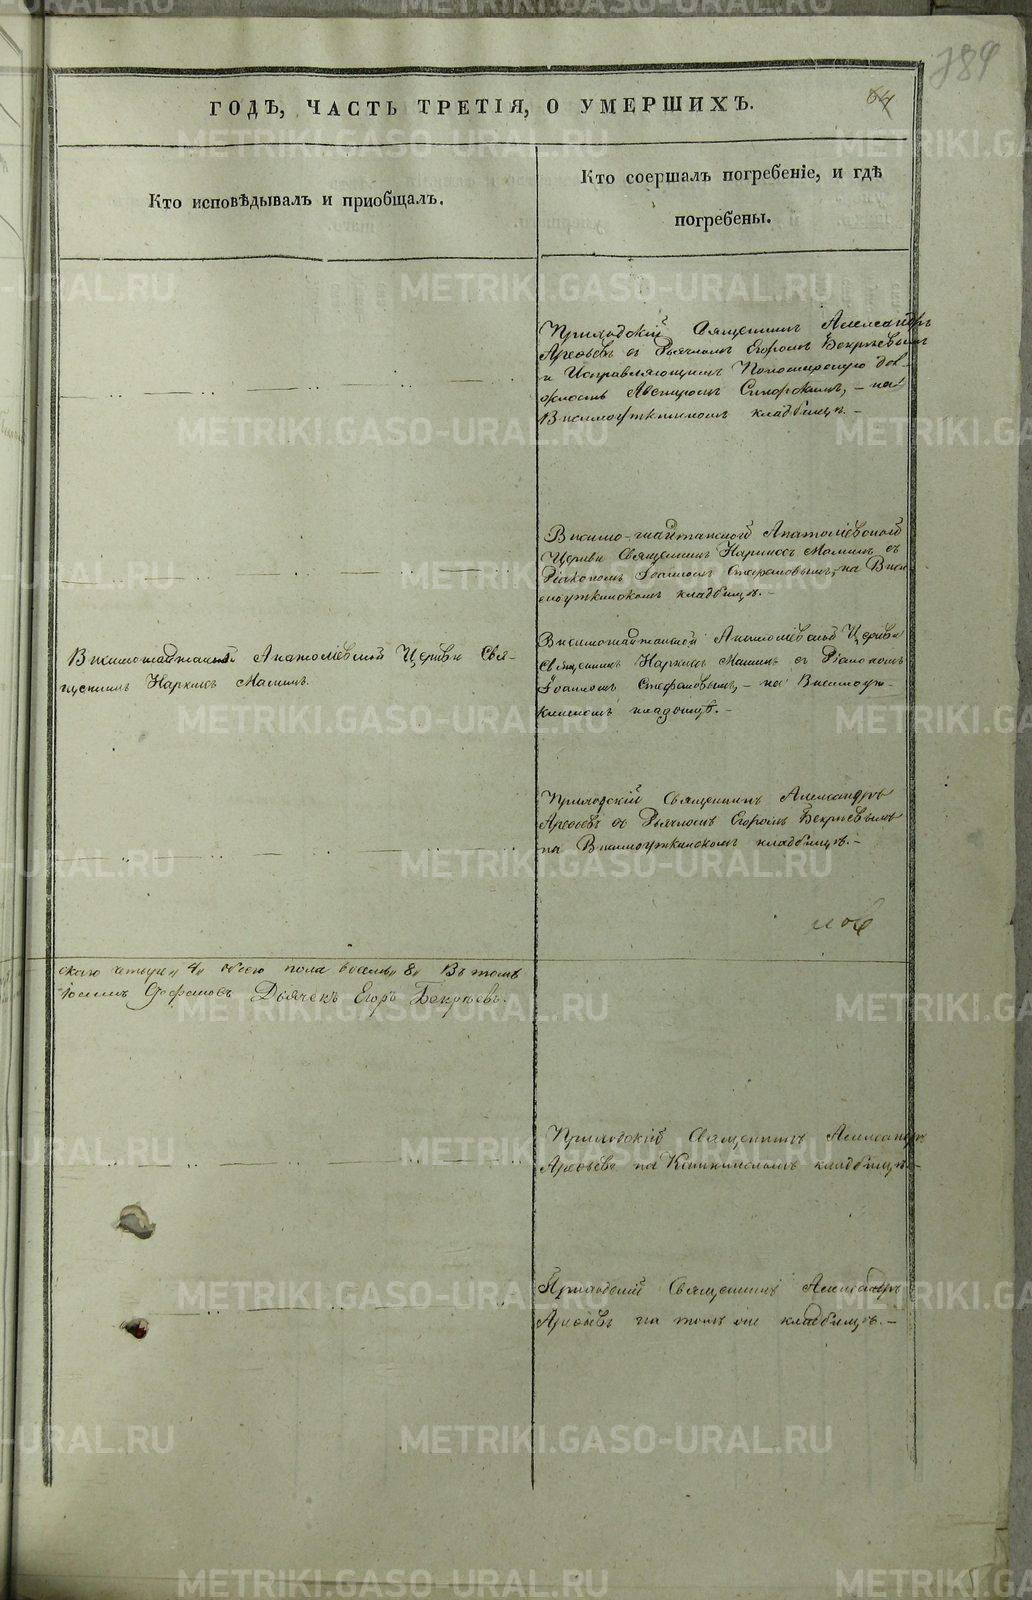 789
64
ГОДѢ, ЧАСТЬ ТРЕТІЯ, О УМЕРШИХЪ.
Кто исповѣдывалъ и приобщалъ.
Кто соершалъ погребеніе, и гдѣ
погребены.
Приходскій Священникъ Александръ
Арефьевъ съ Дьячкомъ Егоромъ Бекрѣевымъ
и Исправляющимъ Пономарскую дол-
жность Сикорскимъ, – на
Висимоуткинскомъ кладбищѣ. –
Висимо-шайтанской Анатоліевской
Церкви Священникъ Наркисъ Маминъ съ
Діакономъ Іоанномъ Стефановымъ, на Виси
моуткинскомъ кладбищѣ. –
Висимошайтанской Анатоліевской Церкви Свя-
щенникъ Наркисъ Маминъ.
Висимошайтанской Анатоліевской Церкви
Священникъ Наркисъ Маминъ съ Діакономъ
Іоанномъ Стефановымъ, – на Висимоут-
кинскомъ кладбищѣ. –
Приходскій Священникъ Александръ
Арефьевъ съ Дьячкомъ Егоромъ Бекрѣевымъ
на Висимоуткинскомъ кладбищѣ. –
скаго четыре „4„ обоего пола восемь „8„ Въ томъ
Іоаннъ Стефановъ Дьячекъ Егоръ Бекрѣевъ.
Приходскій Священникъ Александръ
Арефьевъ на кладбищѣ –
Приходскій Священникъ Александръ
Арефьевъ на томъ же кладбищѣ. –
METRIKI.GASO-URAL.RU